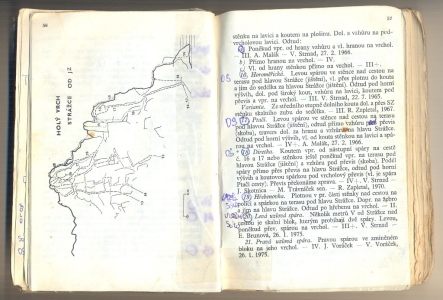 66
HOLÝ VRCH
STRÁŽCE OD JZ
67
stěnku na lavici a koutem na plošinu. Dol. u vzhůru na pod-
vrcholovou lavici. Odtud:
a) Poněkud vpr. od hrany vzhůru a vl. hranou na vrchol.
III. A. Malák — V. Strnad, 27. 2. 1966.
b) Přímo hranou na vrchol. — IV.
c) Vl. od hrany stěnkou přímo na vrchol. — III+.
Horomilická. Levou spárou ve stěně nad cestou na terasu
pod hlavou Strážce (jištění), vl. přes plotnu do koutu
a jím do sedélka za hlavou Strážce (jištění). Odtud pod horní
výšvih, dol. pod široký kout, vzhůru na lavici, koutem pod
převis a vpr. na vrchol. — III. V. Strnad, 22. 7. 1965.
Varianta. Ze středního stupně dolního koutu dol. a přes SZ
stěnku skalního zubu do sedélka. — III. R. Zapletal, 1967.
Ptačí. Levou spárou ve stěně nad cestou na terasu
pod hlavou Strážce (jištění), odtud přímo vzhůru přes převis
(skoba), travers dol. na hranu a vzhůru na hlavu Strážce.
Odtud pod horní výšvih, vl. od hrany koutem na lavici a spá-
rou na vrchol. — IV+. A. Malák, 27. 2. 1966.
Direttka. Koutem vpr. od nástupní spáry na cestě
č. 16 a 17 nebo stěnkou ještě poněkud vpr. na terasu pod
hlavou Strážce (jištění), vzhůru pod převis (skoba). Podél
spáry přímo přes převis na hlavu Strážce, odtud pod horní
výšvih a koutovou spárou pod vrcholový převis (vl. je spára
Ptačí cesty). Převis překonáme zprava. — IV+. V. Strnad —
J. Skotnica — M. Trávníček sen. — R. Zapletal, 1970.
Hrebenovka. Plotnou v pr. části stěnky nad cestou na
polici a spárkou na terasu pod hlavou Strážce. Dopr. na žebro
a jím na hlavu Strážce. Odtud po hřebenu na vrchol. — II.
Levá uzlová spára. Několik metrů V od Strážce nad
cestou je skalní blok, kterým probíhají dvě spáry. Levou,
poněkud přev. spárou na vrchol. — III+. V. Strnad —
E. Brunová, 26. 1. 1975.
21. Pravá uzlová spára. Pravou spárou ve zmíněném
bloku na jeho vrchol. — IV. J. Voráček — V. Voráček,
26. 1. 1975.